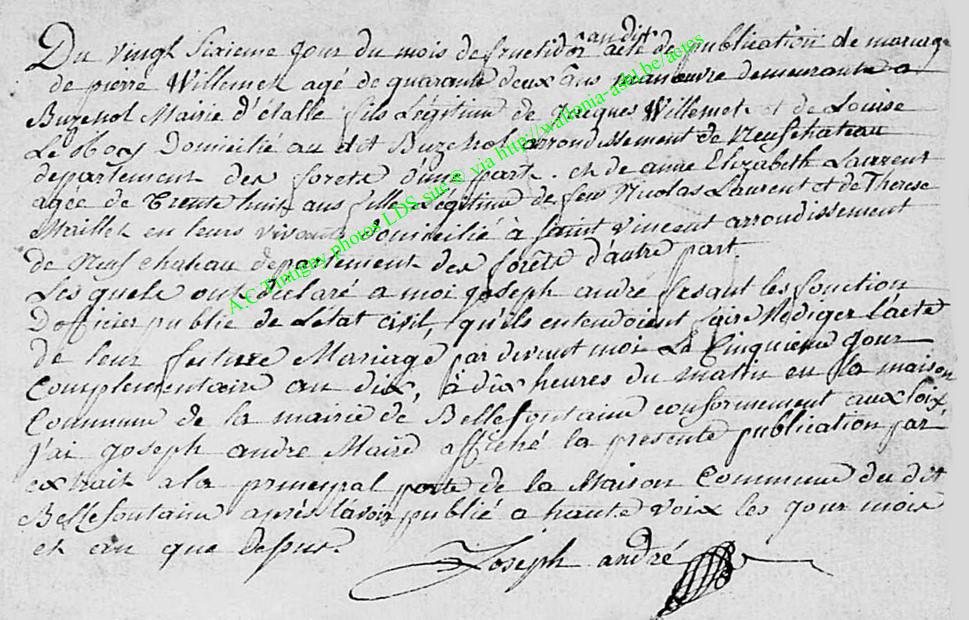 Du vingt sixieme jour du mois de fructidor an dix acte de publication de mariage
de pierre Willemet agé de quarante deux ans manœuvre demeurante a
Buzenol Mairie d'étalle fils Légitime de Jacques Willemet et de Louise
Domicilié au dit Buzenol arrondissement de Neufchateau
departement des forets d'une part. et de anne Elizabeth Laurent
agée de Trente huit ans fille Légitime de feu Nicolas Laurent et de Therese
Maillet en leurs vivant Domicilié à saint vincent arrondissement
de Neufchateau departement des forêts d'autre part.
Les quels ont declaré a moi joseph andre fesant les fonction
D'officier public de L'état civil, qu'ils entendoient faire Rédiger L'acte
de leur future Mariage par devant moi Le Cinquieme Jour
Complementaire an dix, à dix heures du matin en la maison
Commune de la mairie de Bellefontaine conformement aux loix,
j'ai joseph andre Maire affiché la presente publication par
extrait a la principal porte de la Maison Commune du dit
Bellefontaine après l'avoir publié a haute voix les jour mois
et an que dessus.
Joseph andré
A.C Tintigny photos LDS site © via http://wallonia-asbl.be/actes